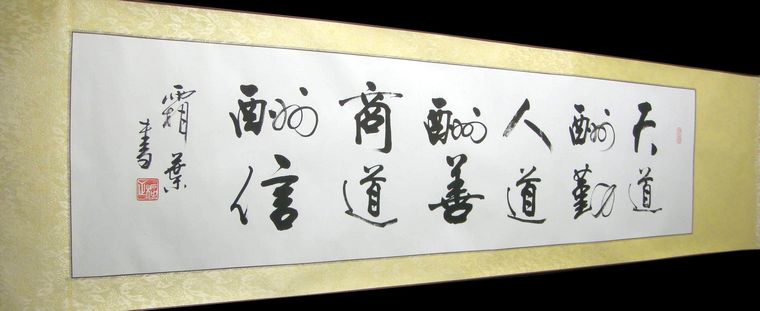 天道
酬勤
人道
酬善
商道
酬信
霜葉
書